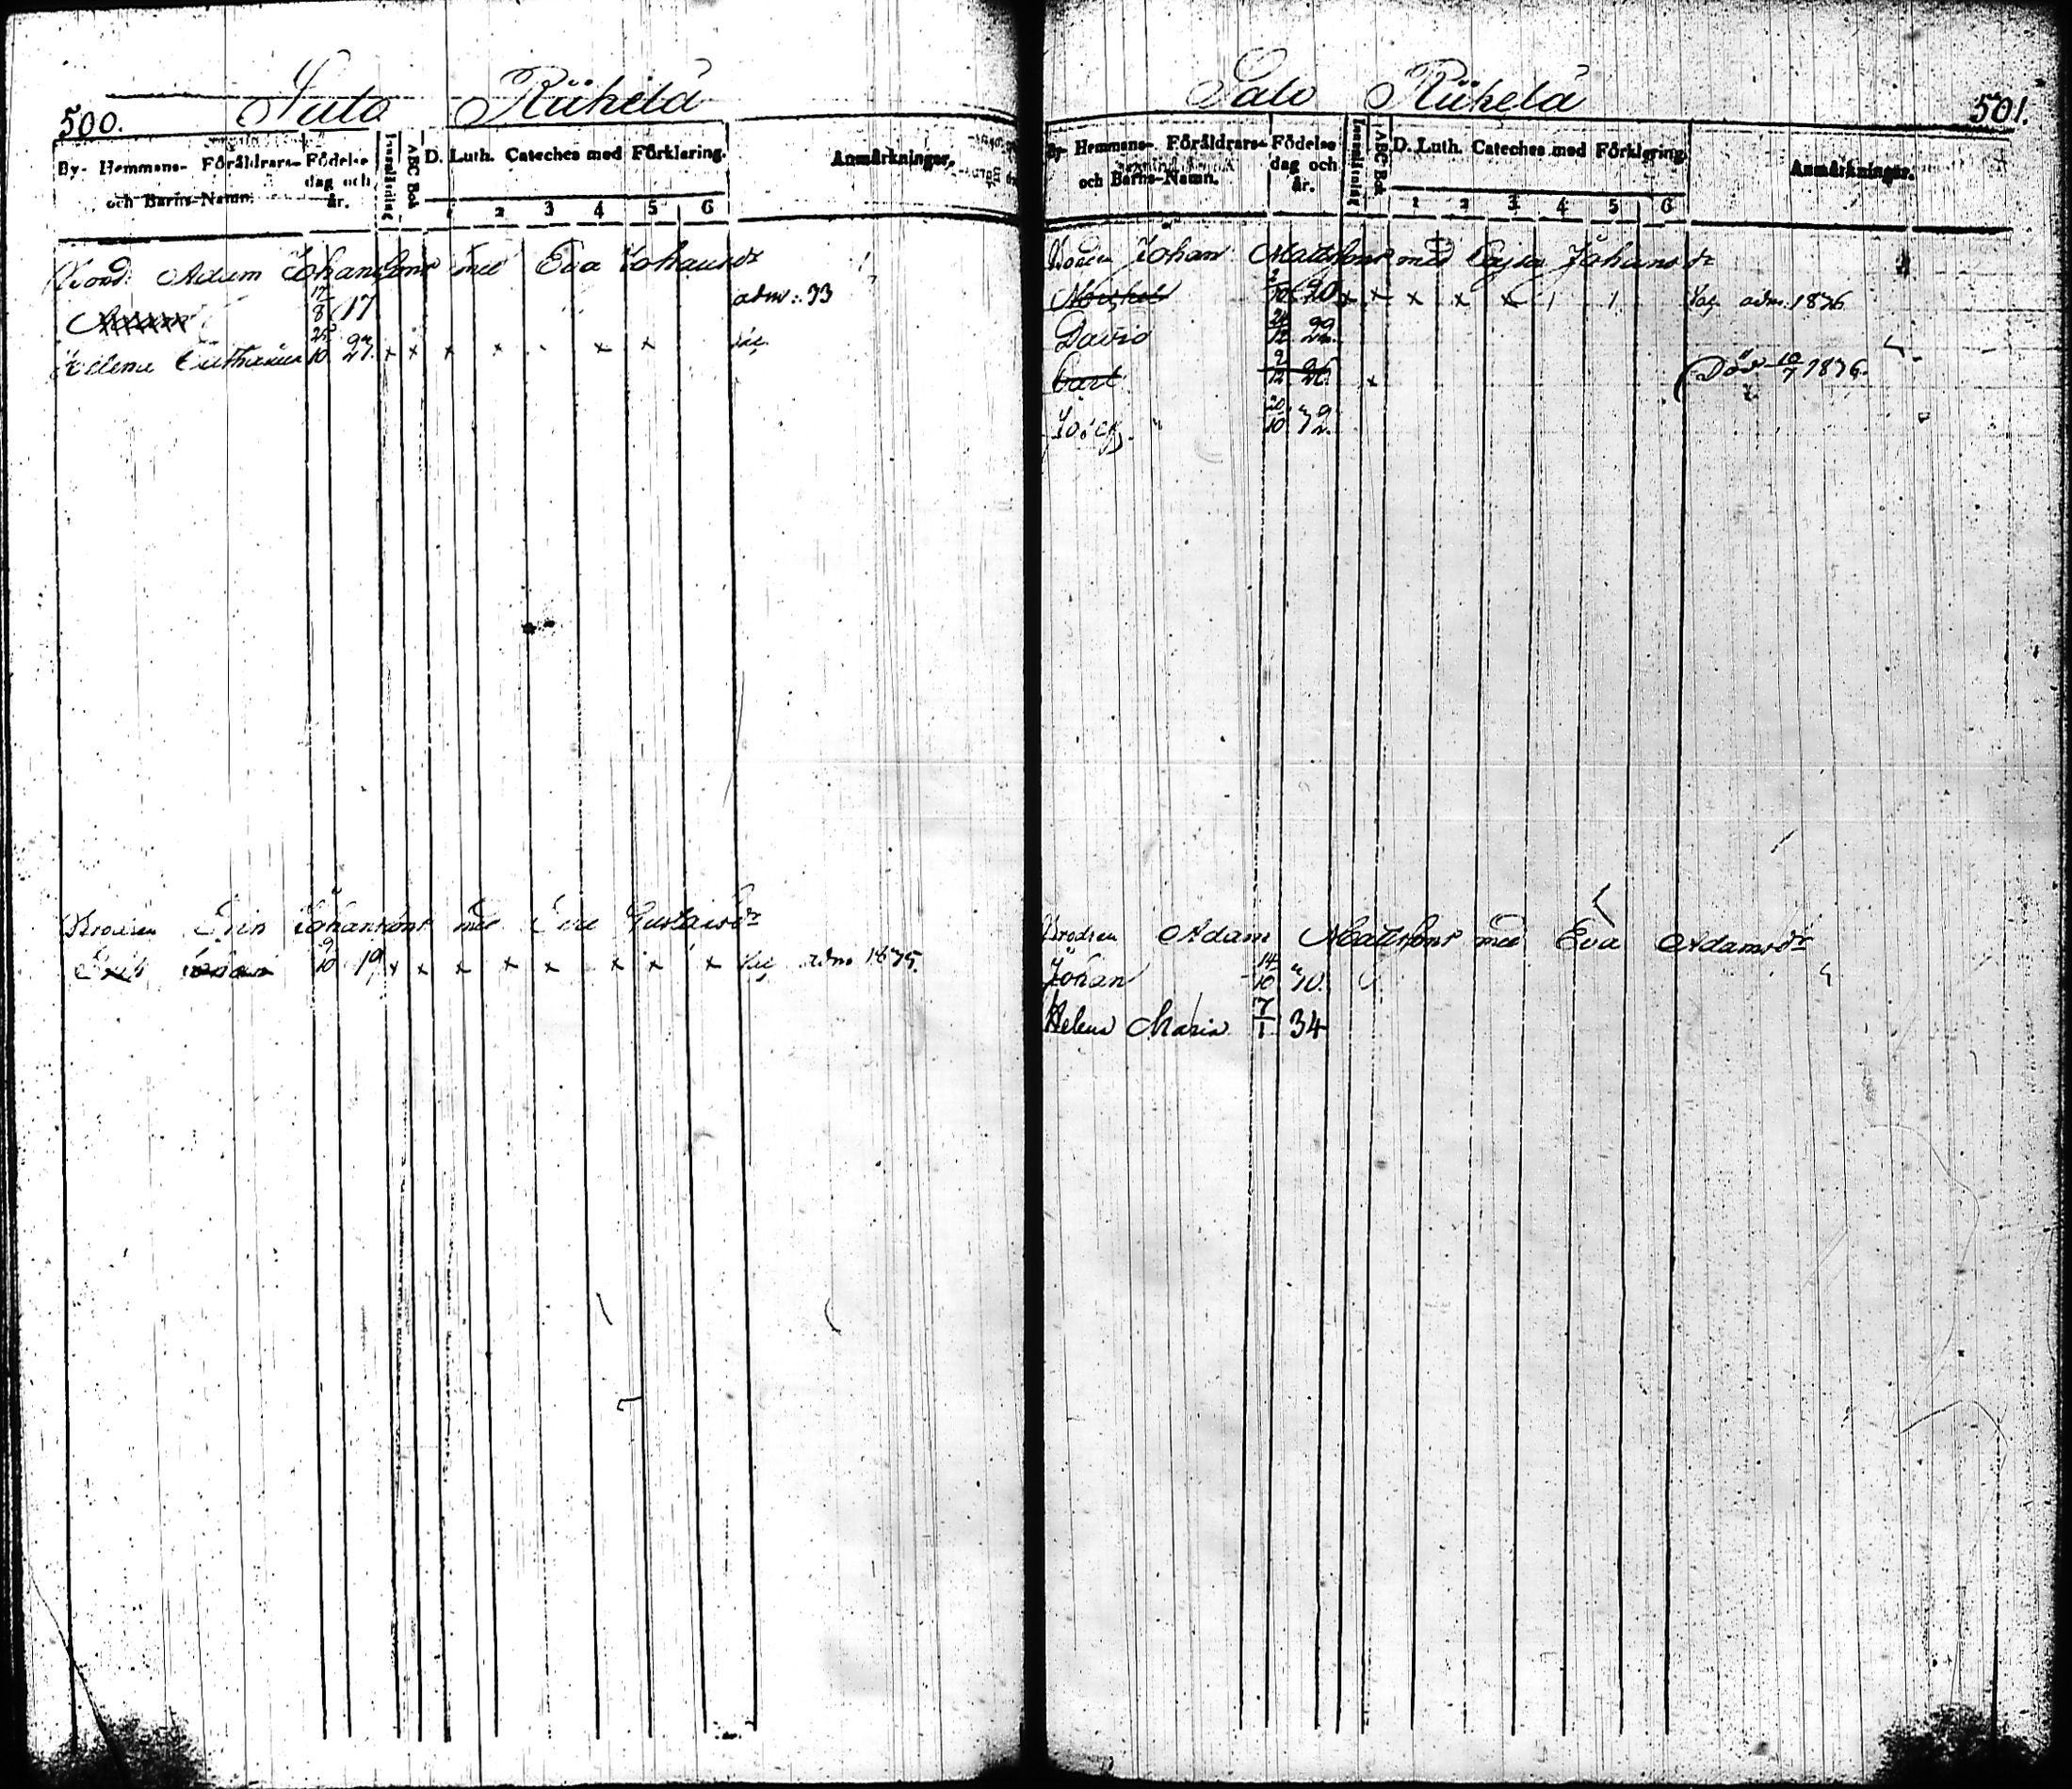 500. Salo Riihelä
By- Hemmans- Föräldrars- och Barns-Namn. Födelse dag och år. Innanläsning ABC Bok D. Luth. Cateches med Förklaring. Anmärkningar.
1 2 3 4 5 6
Bond. Adam Johansson med Eva Johansdr
17/8 17 adm: 33
Helena Catharina 25/10 27. x x x x x x
Brodren Eric Johansson med Eva Gustavsdr
Eric Johan 9/10 19 x x x x x x x x adm 1835.
Salo Riihelä 501.
By- Hemmans- Föräldrars- och Barns-Namn. Födelse dag och år. Innanläsning ABC Bok D. Luth. Cateches med Förklaring. Anmärkningar.
1 2 3 4 5 6
Bonden Johan Mattsson med Cajsa Johansdr
Michel 2/10 20 x x x x x / / adm. 1836
David 24/12 22.
Carl 2/12 26. x Död 10/7 1836.
Josef 20/10 32.
Brodren Adam Mattsson med Eva Adamsdr
Johan 14/10 30.
Helena Maria 7/1 34